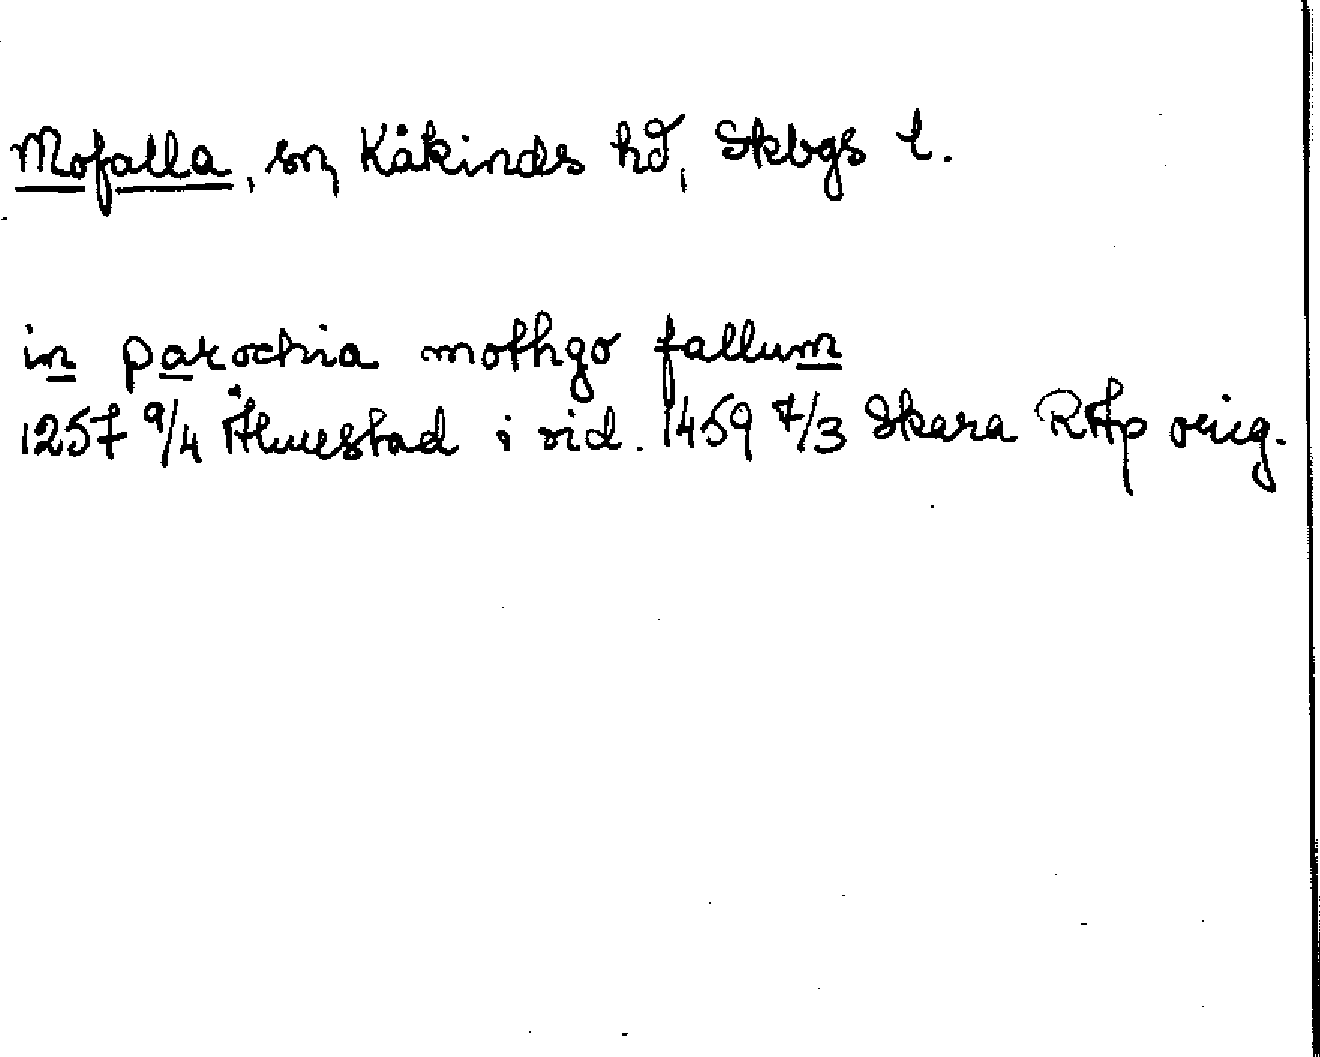 Mofalla, sn, Kåkinds hd, Skbgs l.
in parochia mothgo fallum
1257 9/4 Ålmestad i vid. 1459 7/3 Skara RAp orig.